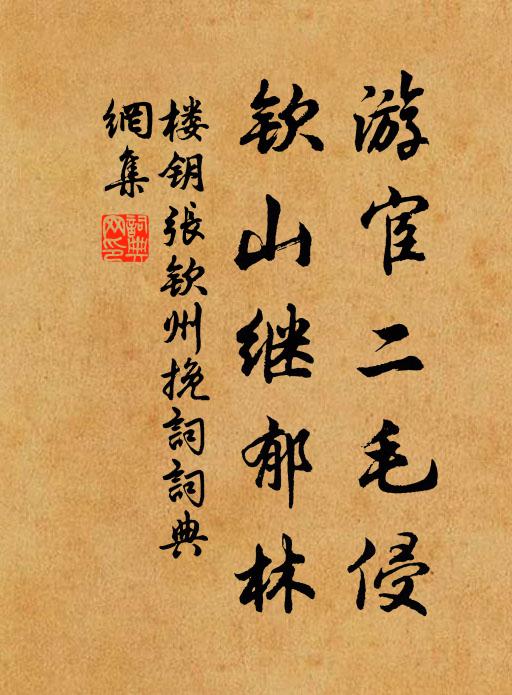 游宦二毛侵
钦山继郁林
楼钥张钦州挽词词典
網集
詞典
网印